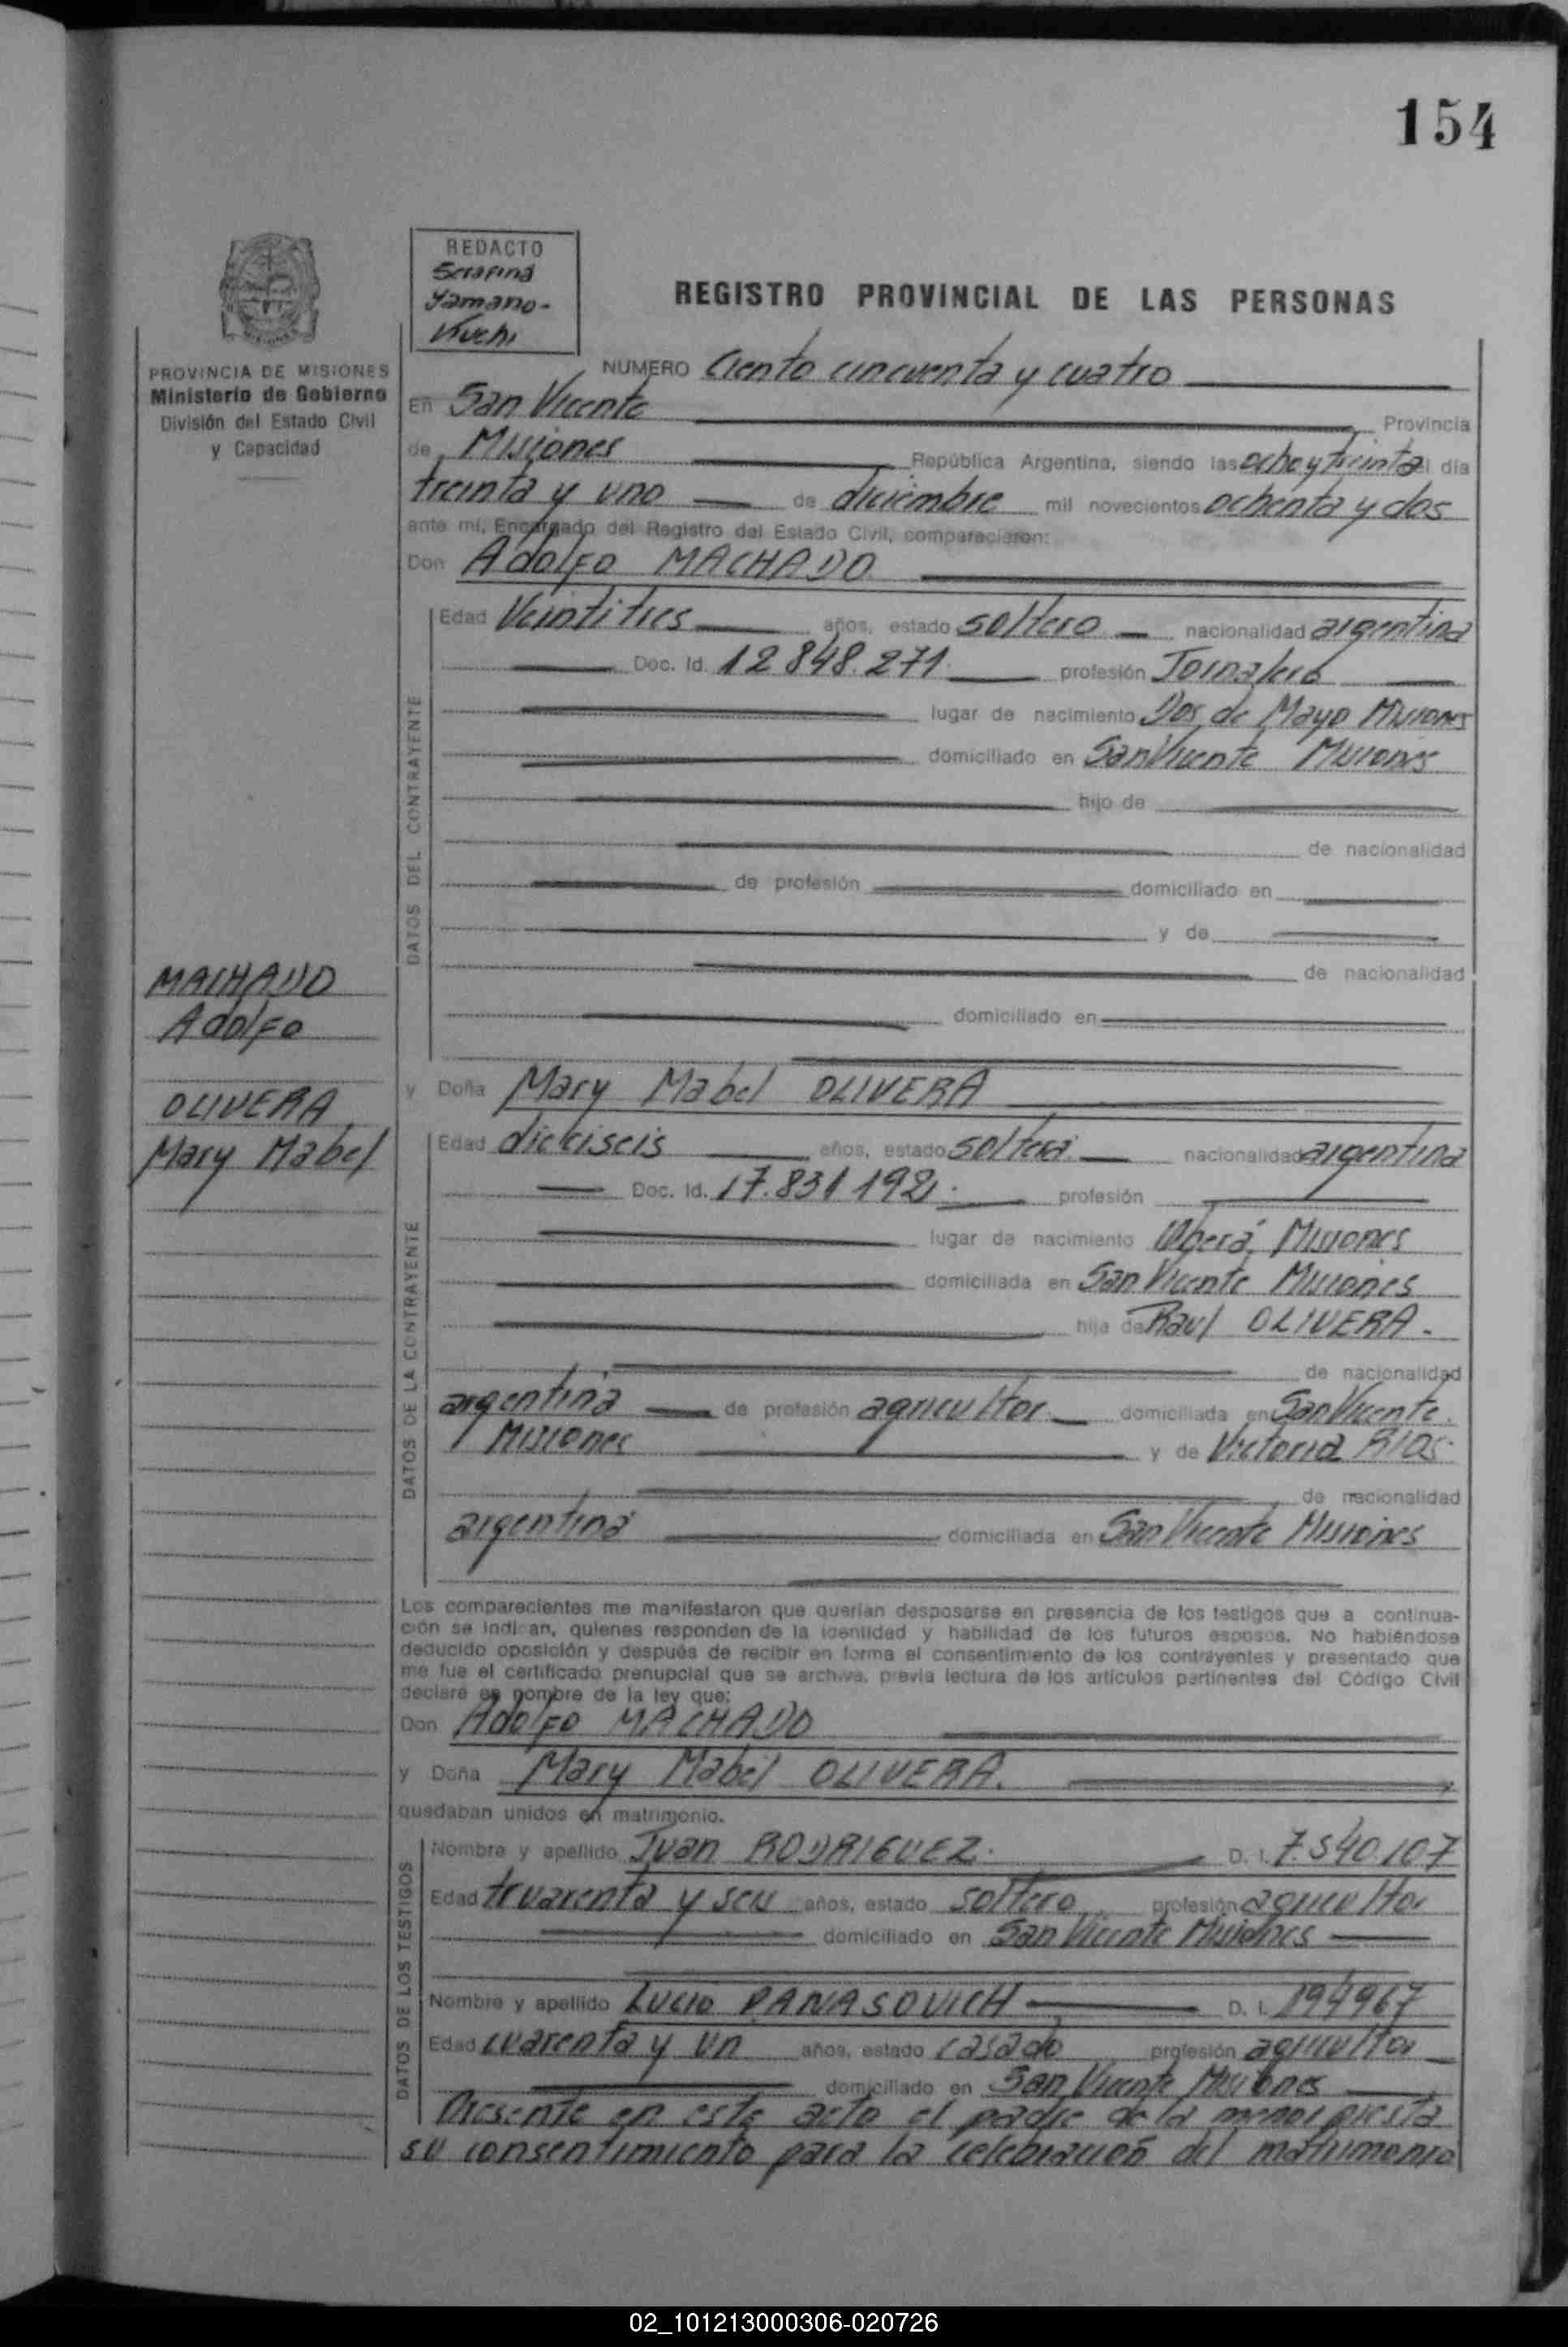 154
REDACTO
Serafina
Yamano-
Kiuchi
REGISTRO PROVINCIAL DE LAS PERSONAS
PROVINCIA DE MISIONES
Ministerio de Gobierno
División del Estado Civil
y Capacidad
NUMERO Ciento cincuenta y cuatro
En San Vicente Provincia
de Misiones República Argentina, siendo las ocho y treinta el día
treinta y uno de diciembre mil novecientos ochenta y dos
ante mí, Encargado del Registro del Estado Civil, comparecieron:
Don Adolfo MACHADO
DATOS DEL CONTRAYENTE
Edad Veintitres años, estado soltero nacionalidad argentina
Doc. Id. 12.848.271 profesión Jornalero
lugar de nacimiento Dos de Mayo Misiones
domiciliado en San Vicente Misiones
hijo de
de nacionalidad
de profesión domiciliado en
y de
de nacionalidad
domiciliado en
MACHADO
Adolfo
OLIVERA
Mary Mabel
y Doña Mary Mabel OLIVERA
DATOS DE LA CONTRAYENTE
Edad dieciseis años, estado soltera nacionalidad argentina
Doc. Id. 17.831.192. profesión
lugar de nacimiento Oberá, Misiones
domiciliada en San Vicente Misiones
hija de Raul OLIVERA.
de nacionalidad
argentina de profesión agricultor domiciliada en San Vicente
Misiones y de Victoria RIOS.
de nacionalidad
argentina domiciliada en San Vicente Misiones
Los comparecientes me manifestaron que querían desposarse en presencia de los testigos que a continua-
ción se indican, quienes responden de la identidad y habilidad de los futuros esposos. No habiéndose
deducido oposición y después de recibir en forma el consentimiento de los contrayentes y presentado que
me fue el certificado prenupcial que se archiva, previa lectura de los artículos pertinentes del Código Civil
declaré en nombre de la ley que:
Don Adolfo MACHADO
y Doña Mary Mabel OLIVERA.
quedaban unidos en matrimonio.
DATOS DE LOS TESTIGOS
Nombre y apellido Juan RODRIGUEZ. D. I. 7.540.107
Edad cuarenta y seis años, estado soltero profesión agricultor
domiciliado en San Vicente Misiones
Nombre y apellido Lucio PANASOVICH D. I. 194967
Edad cuarenta y un años, estado casado profesión agricultor
domiciliado en San Vicente Misiones
Presente en este acto el padre de la menor presta
su consentimiento para la celebración del matrimonio
02_101213000306-020726